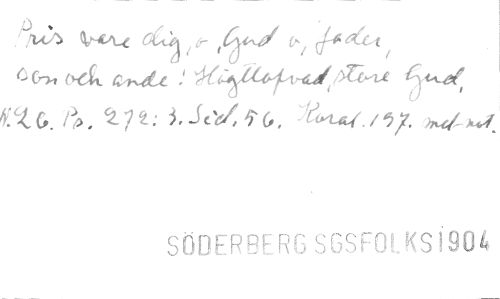 Pris vare dig, o, Gud o, fader,
son och ande! Högtlofvad, store Gud,
N.26. Ps. 272:3. Sid. 56. Koral. 197. med not.
SÖDERBERG SGSFOLKS1904